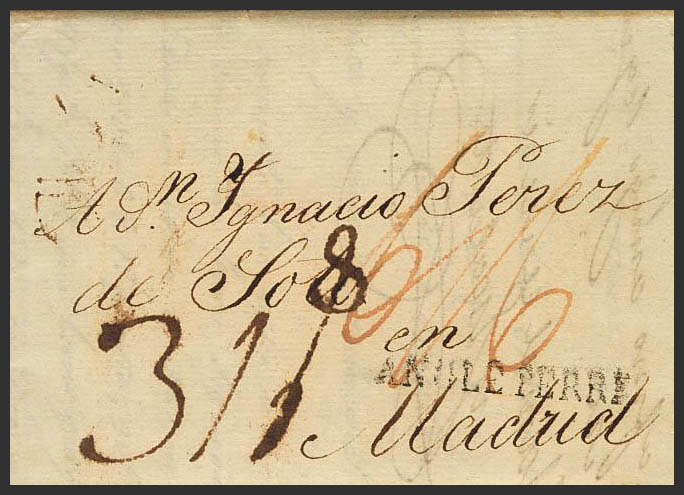 A dn. Ignacio Perez
de Soto
8
en
ANGLETERRE
Madrid